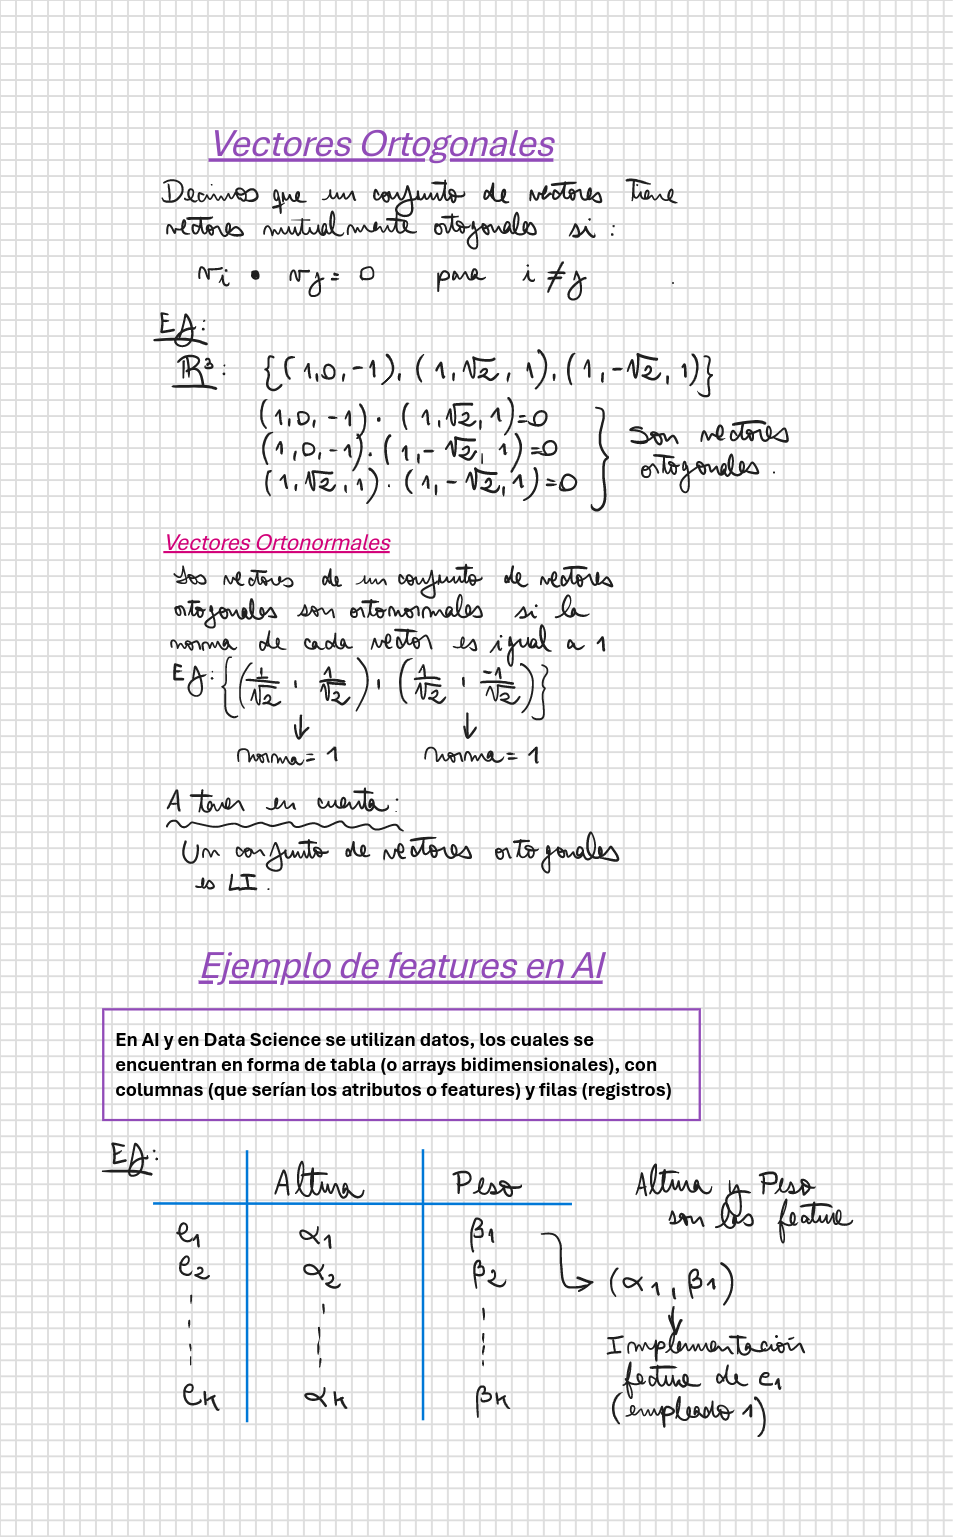 Vectores Ortogonales
Decimos que un conjunto de vectores tiene
vectores mutualmente ortogonales si :
vi • vj = 0 para i ≠ j
EJ:
ℝ³: {(1,0,-1), (1,√2,1), (1,-√2,1)}
(1,0,-1) · (1,√2,1)=0
(1,0,-1) · (1,-√2,1)=0
(1,√2,1) · (1,-√2,1)=0
Son vectores
ortogonales.
Vectores Ortonormales
Los vectores de un conjunto de vectores
ortogonales son ortonormales si la
norma de cada vector es igual a 1
EJ: {(1/√2, 1/√2), (1/√2, -1/√2)}
↓ ↓
norma = 1 norma = 1
A tener en cuenta:
Un conjunto de vectores ortogonales
es LI.
Ejemplo de features en AI
En AI y en Data Science se utilizan datos, los cuales se
encuentran en forma de tabla (o arrays bidimensionales), con
columnas (que serían los atributos o features) y filas (registros)
EJ:
Altura Peso
e1 α1 β1
e2 α2 β2
ek αk βk
Altura y Peso
son las feature
(α1, β1)
Implementación
feature de e1
(empleado 1)